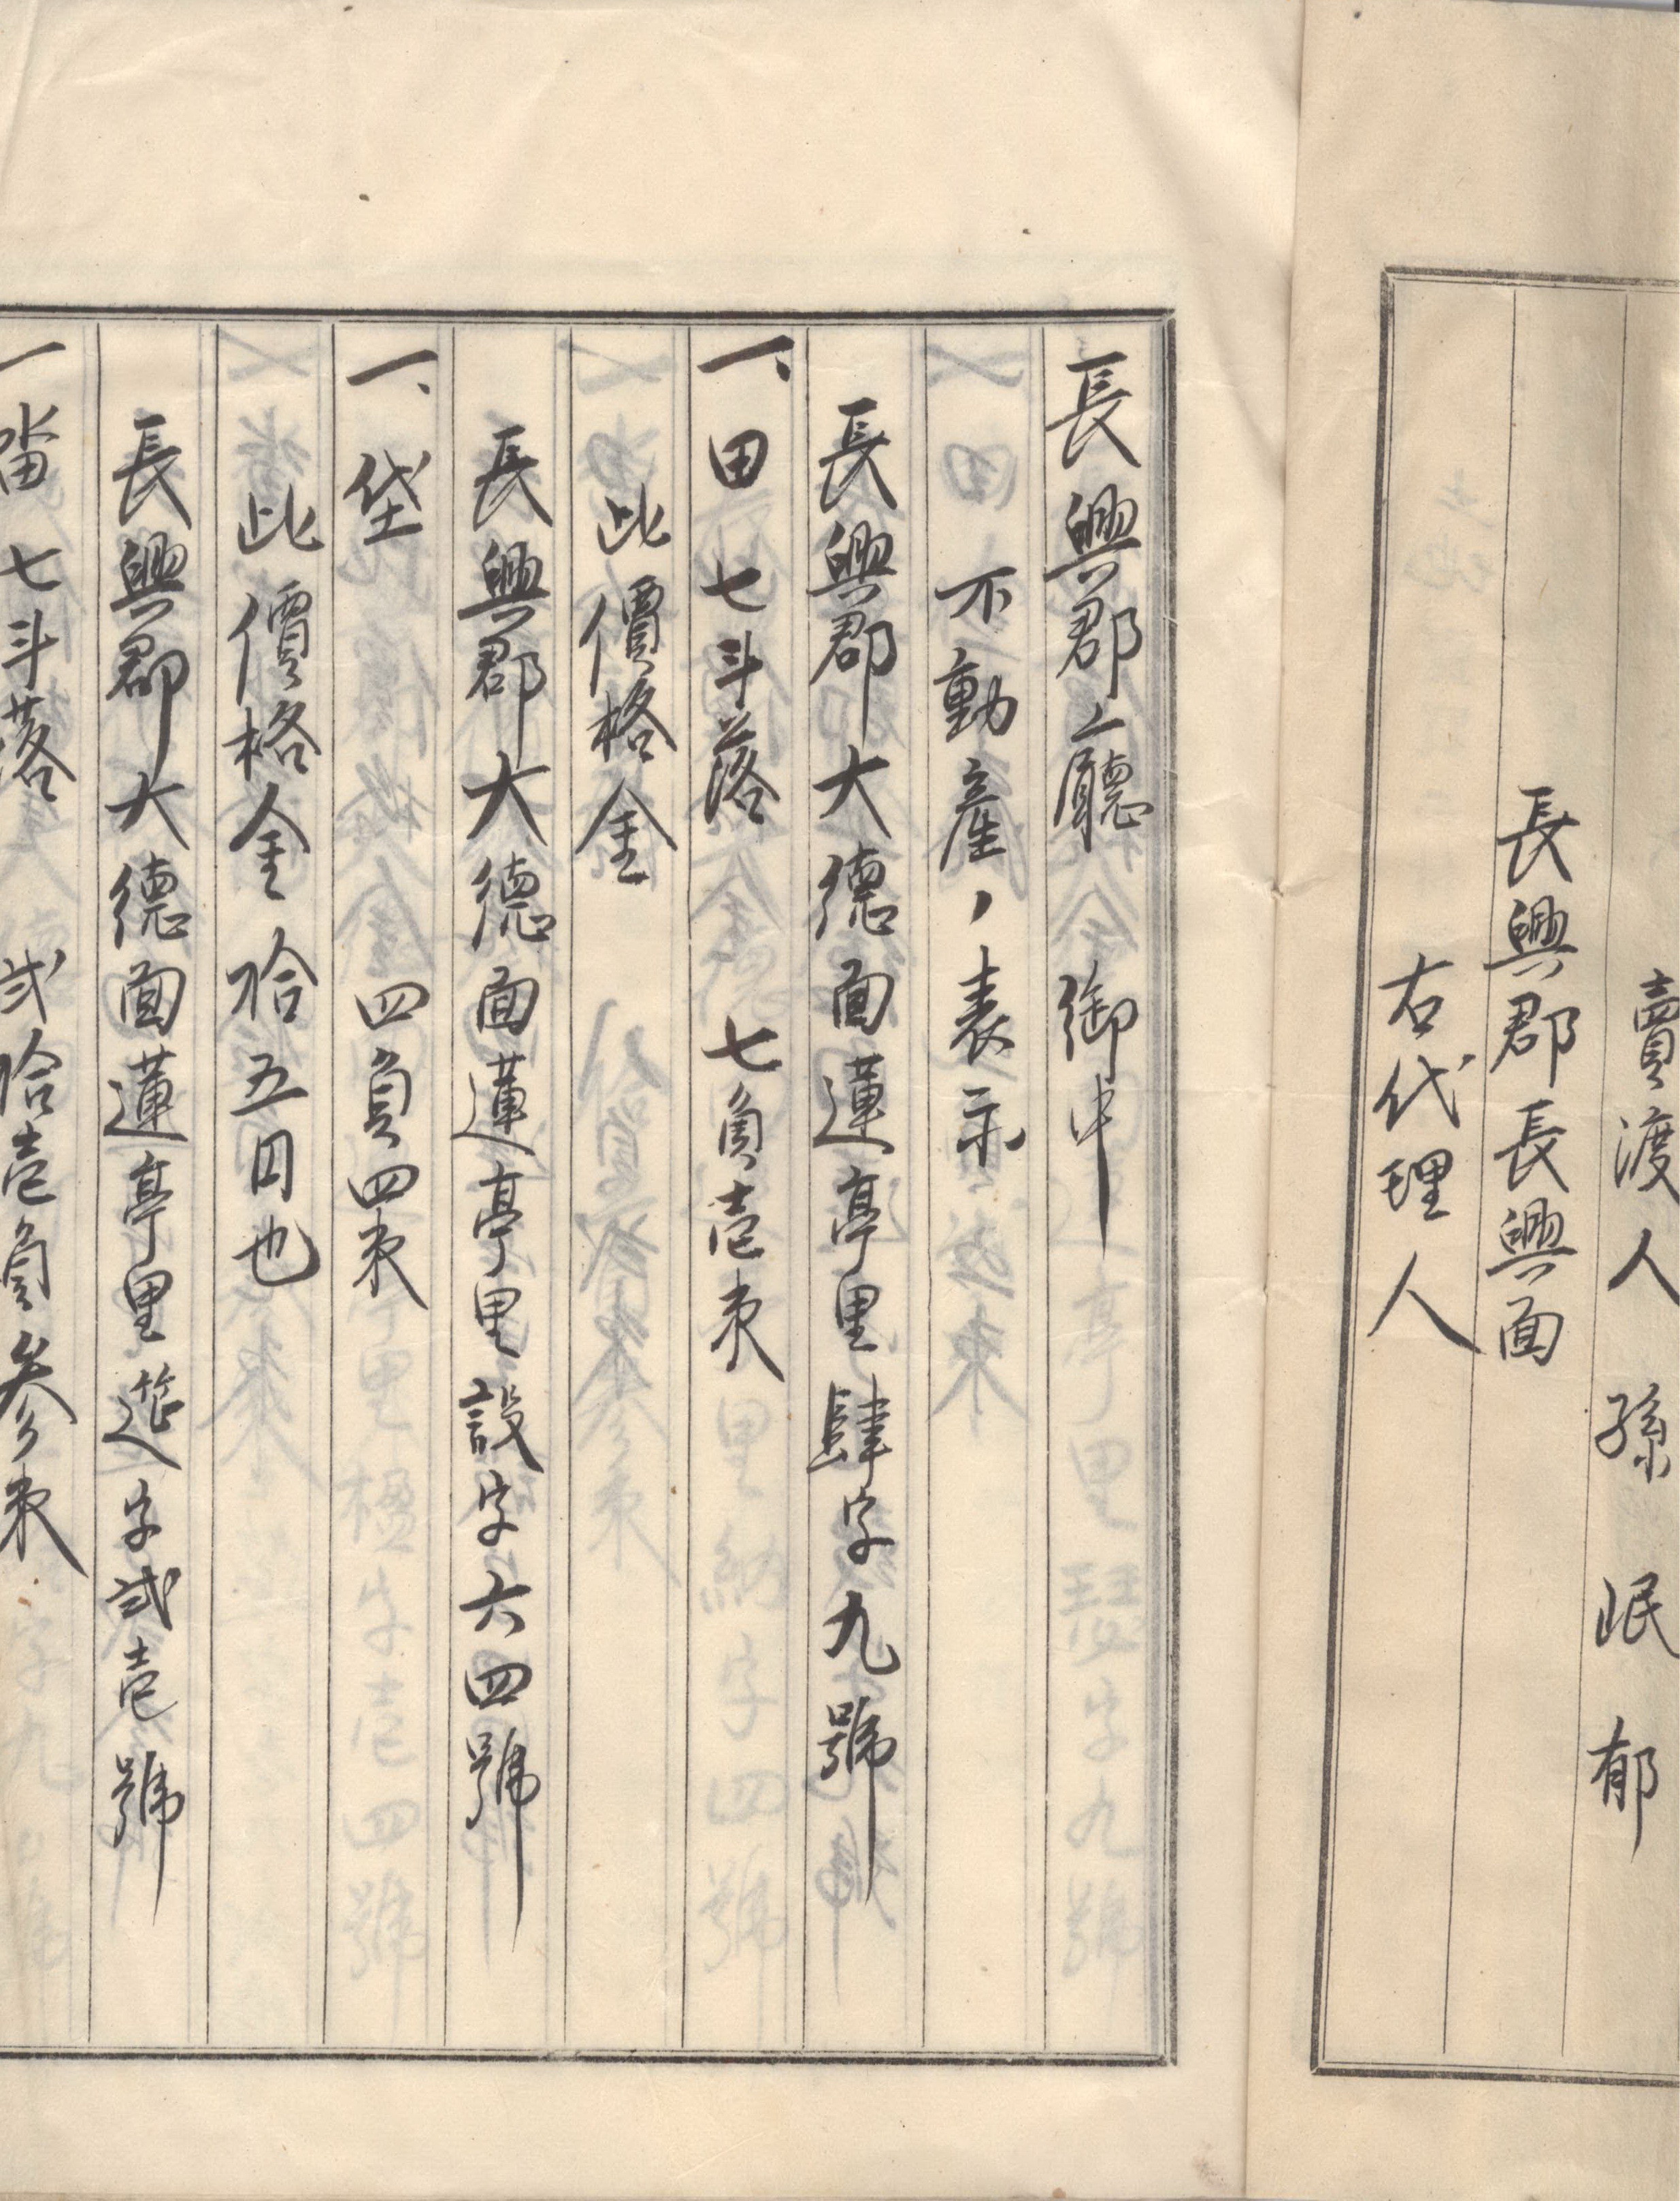 賣渡人 孫岷郁
長興郡長興面
右代理人
長興郡廳 御中
不動産ノ表示
長興郡大德面蓮亭里肆字九號
一、田七斗落 七負壱束
此價格金
長興郡大德面蓮亭里設字六四號
一、垈 四負四束
此價格金拾五円也
長興郡大德面蓮亭里筵字弍壱號
一畓七斗落 弍拾壱負参束